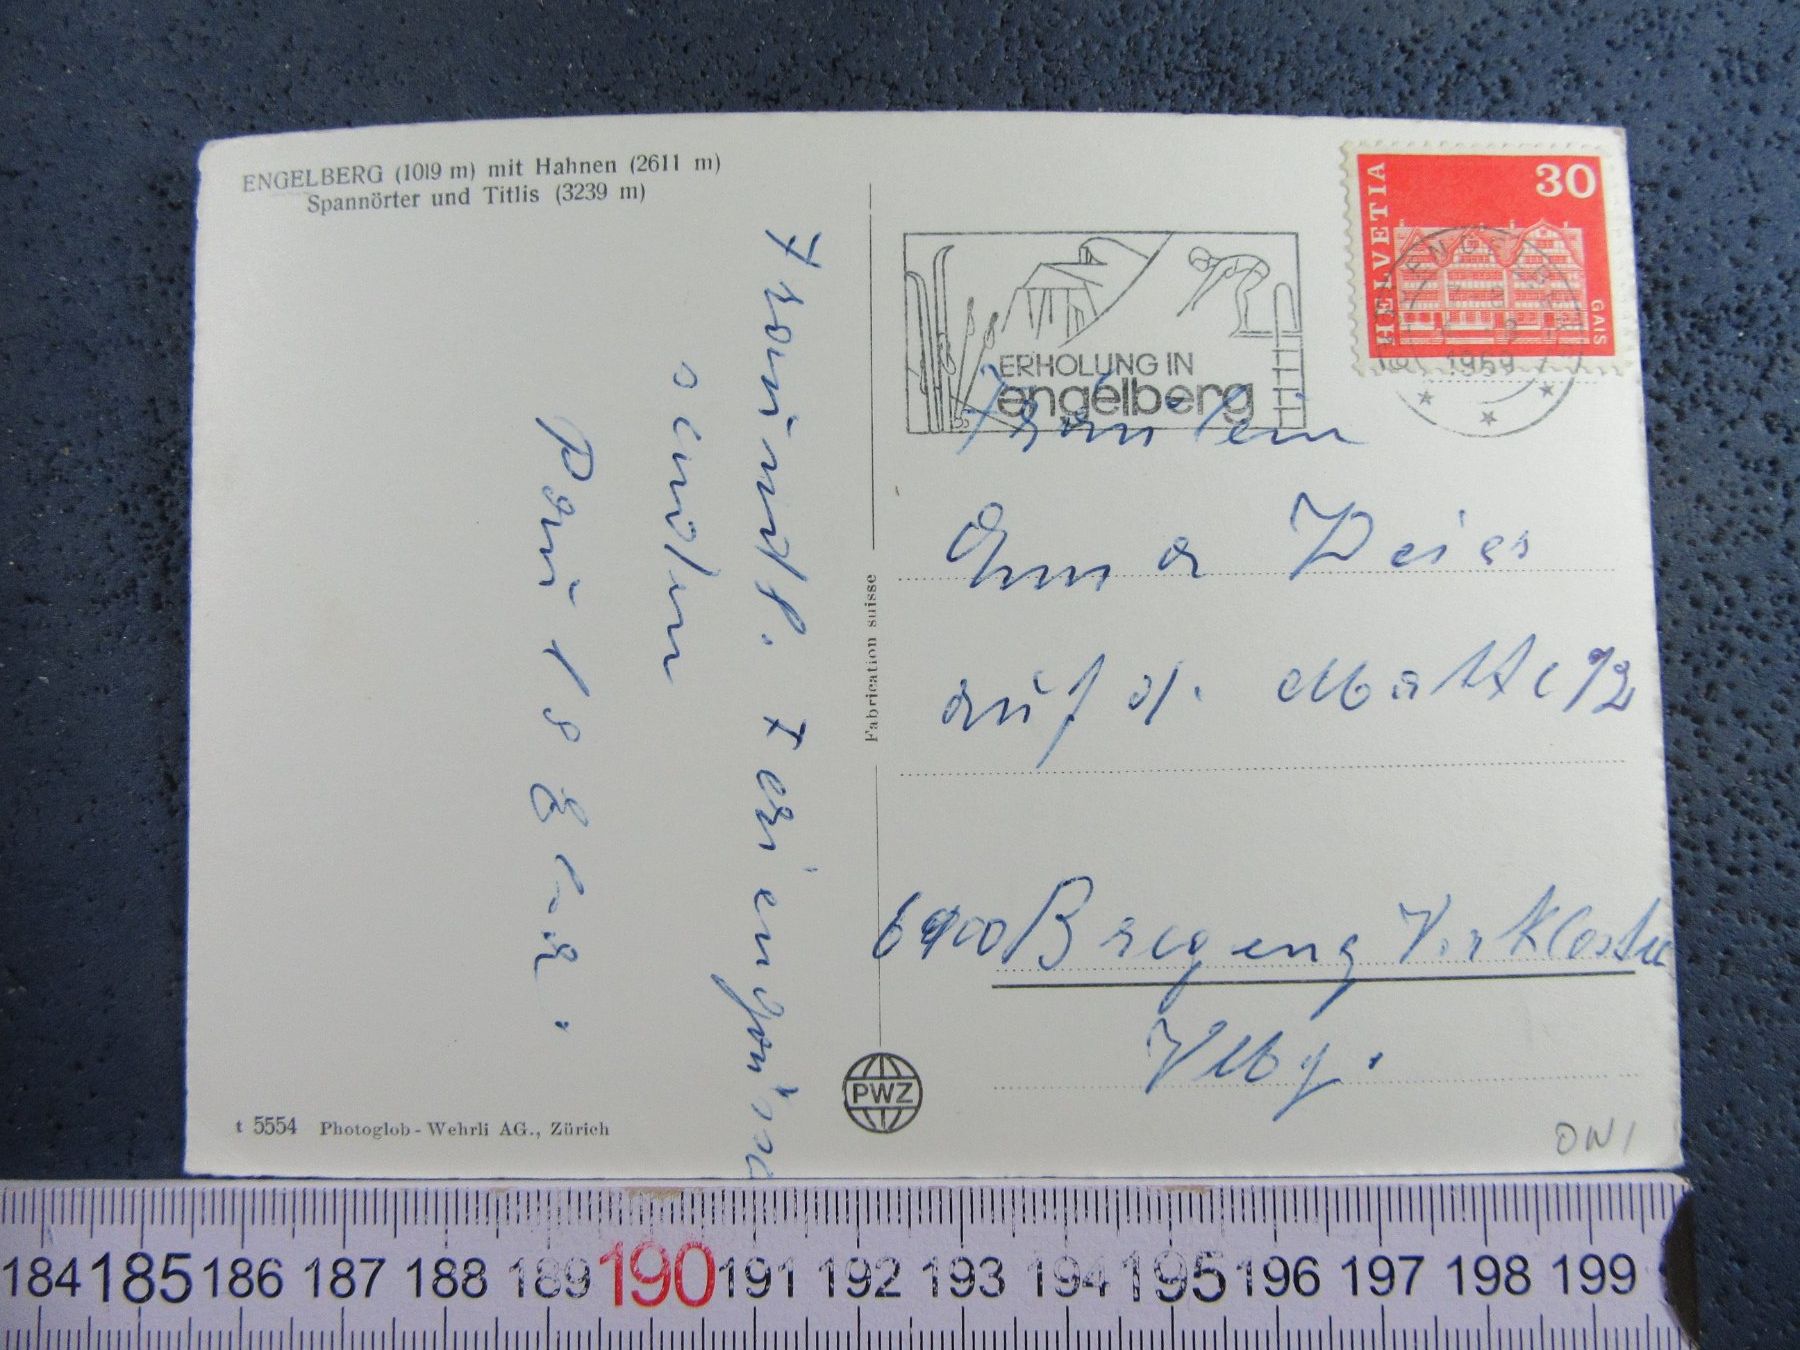 ENGELBERG (1019 m) mit Hahnen (2611 m)
Spannörter und Titlis (3239 m)
Freundl. Feriengrüsse
senden
Paul &
t 5554 Photoglob-Wehrli AG., Zürich
Fabrication suisse
PWZ
ERHOLUNG IN
engelberg
HELVETIA
30
GAIS
ENGELBERG
1969
Fräulein
Anna
auf d. Matte 92
6900 Bregenz Vorkloster
Vlbg.
ON1
184 185 186 187 188 189 190 191 192 193 194 195 196 197 198 199